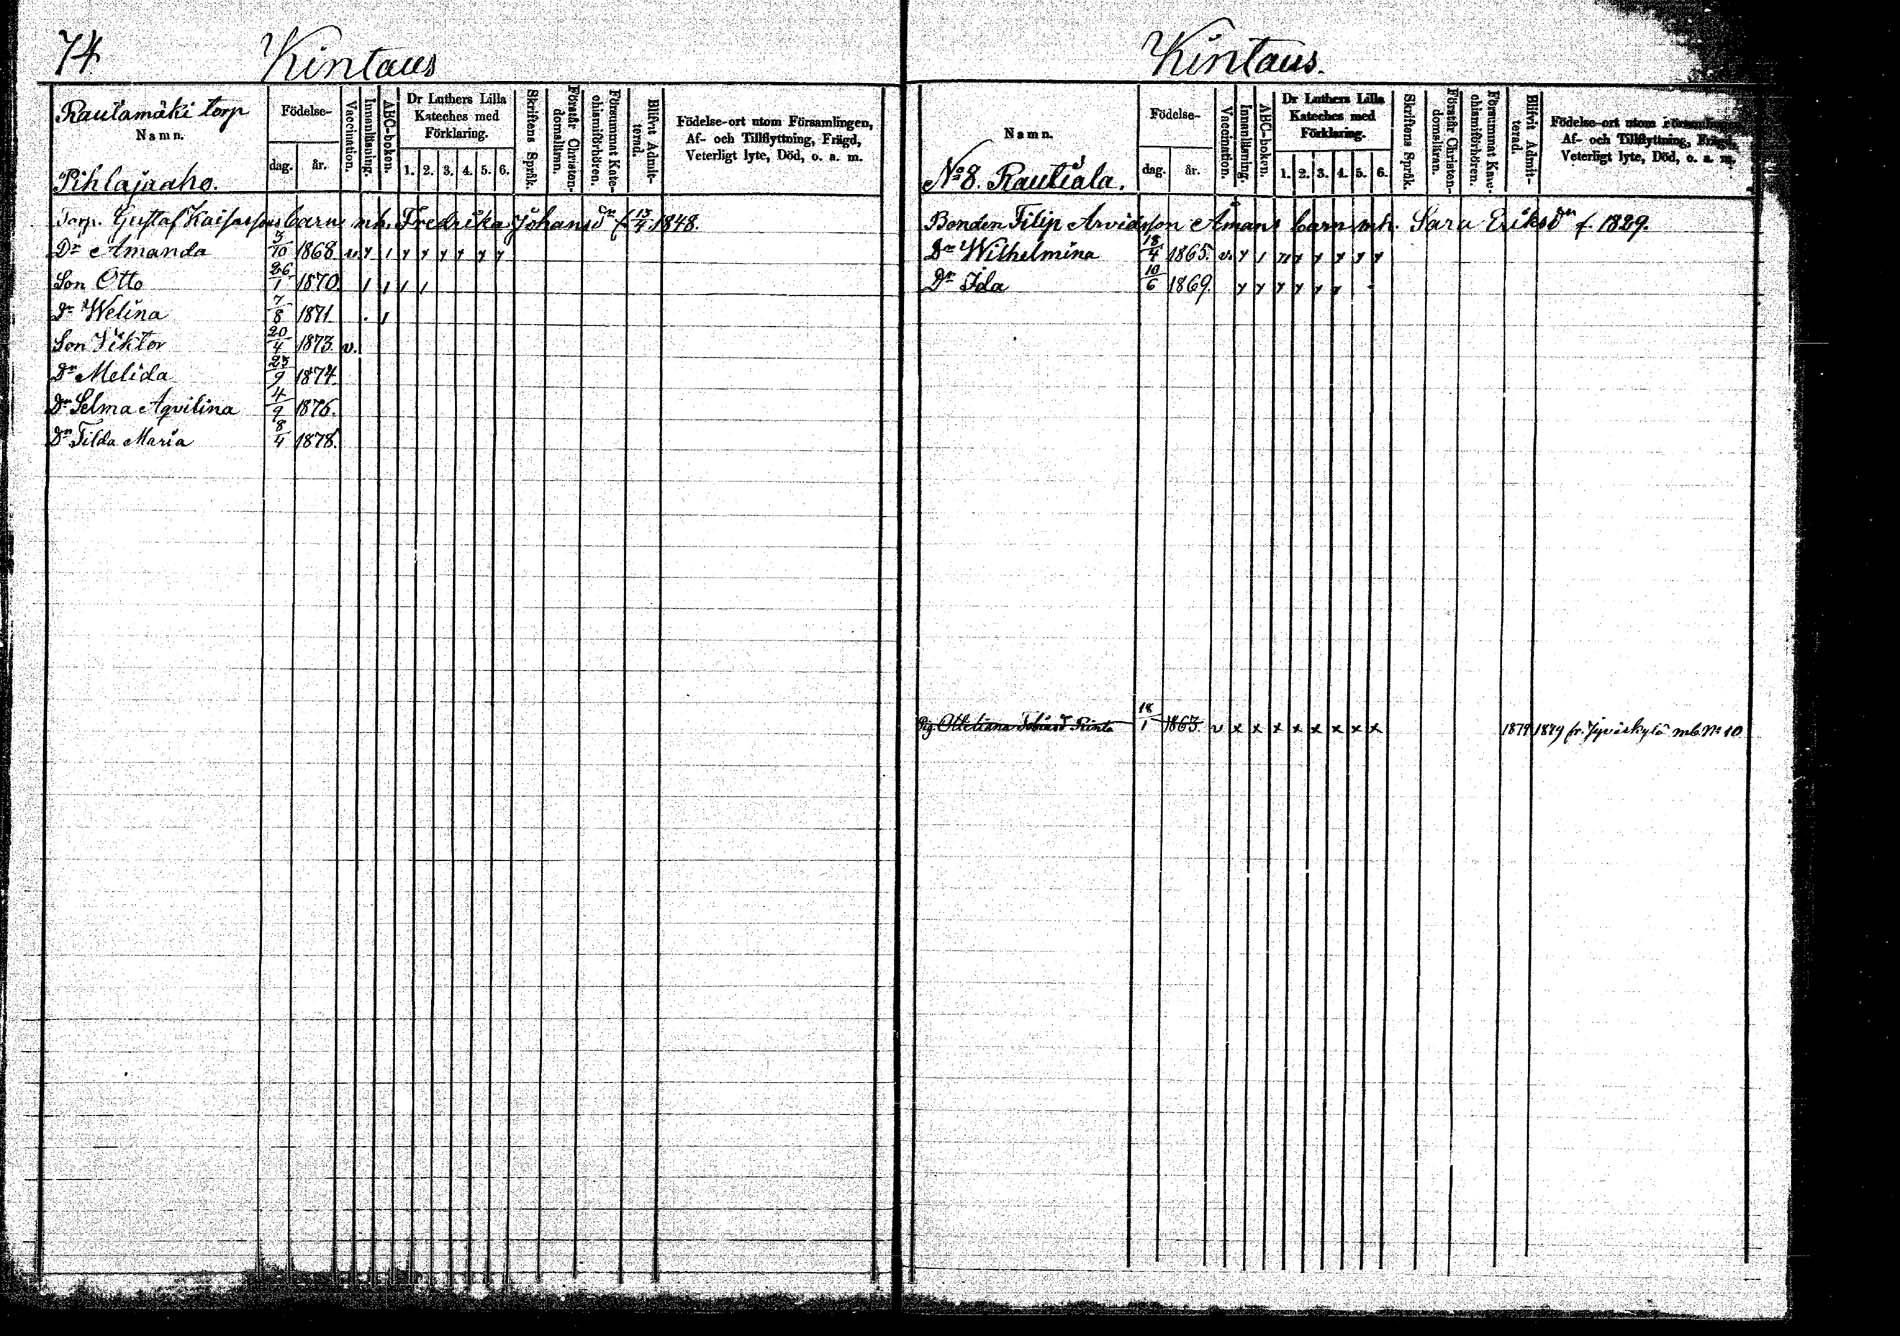 74
Kintaus
Rautamäki torp
Namn.
Pihlajaaho.
Födelse-
dag. år.
Vaccination.
Innanläsning.
ABC-boken.
Dr Luthers Lilla
Kateches med
Förklaring.
1. 2. 3. 4. 5. 6.
Skriftens Språk.
Förstår Christen-
domsläran.
Försummat Kate-
chismiförhören.
Blifvit Admit-
terad.
Födelse-ort utom Församlingen,
Af- och Tillflyttning, Frägd,
Veterligt lyte, Död, o. a. m.
Torp. Gustaf Kaisassons barn mh. Fredrika Johansdr f. 13/4 1848.
Dr Amanda 3/10 1868 v. y 1 y y y y y y
Son Otto 26/1 1870. 1 1 1 1
Dr Welina 7/8 1871 . 1
Son Viktor 20/4 1873. v.
Dr Melida 23/9 1874.
Dr Selma Aqvilina 4/9 1876.
Dr Tilda Maria 8/4 1878.
Kintaus.
Namn.
No 8. Rautiala.
Födelse-
dag. år.
Vaccination.
Innanläsning.
ABC-boken.
Dr Luthers Lilla
Kateches med
Förklaring.
1. 2. 3. 4. 5. 6.
Skriftens Språk.
Förstår Christen-
domsläran.
Försummat Kate-
chismiförhören.
Blifvit Admit-
terad.
Födelse-ort utom Församlingen,
Af- och Tillflyttning, Frägd,
Veterligt lyte, Död, o. a. m.
Bonden Filip Arvidsson Åmans barn mh. Sara Eriksdr f. 1829.
Dr Wilhelmina 18/4 1865. v. y 1 y y y y y y
Dr Ida 10/6 1869. y y y y y y
Pig. 18/1 1863. v x x x x x x x x 1879 1879 fr. Jyväskylä mb. No 10